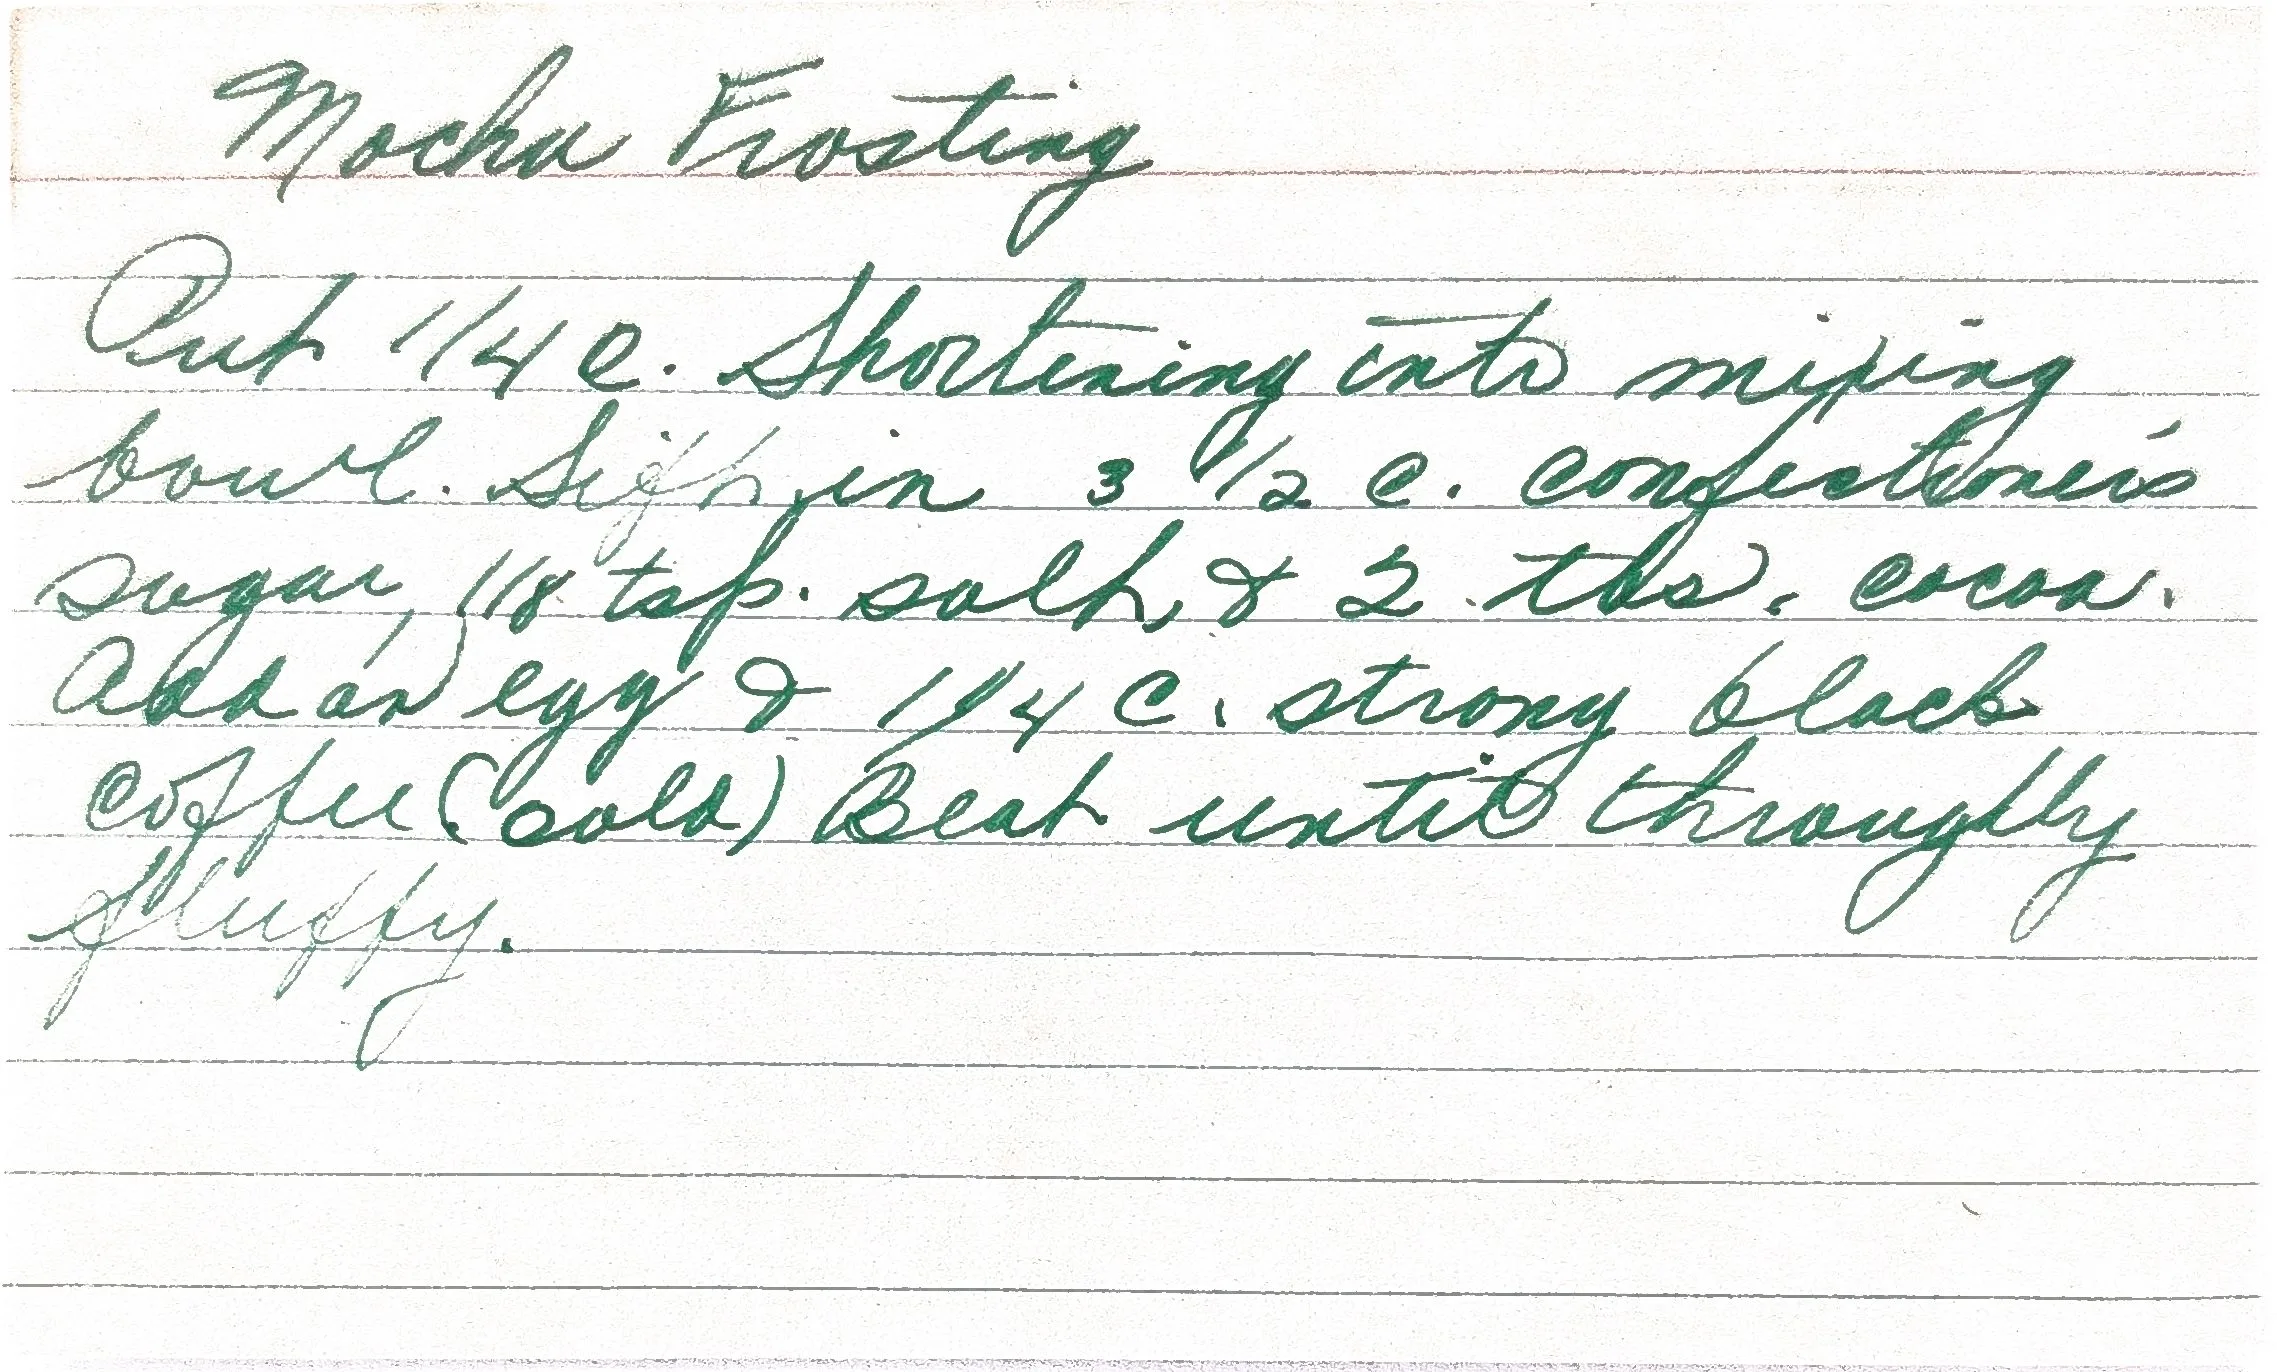 Mocha Frosting
Put 1/4 c. Shortening into mixing
bowl. Sift in 3 1/2 c. confectioner's
sugar, 1/8 tsp. salt, & 2 tbs. cocoa.
Add an egg & 1/4 c. strong black
coffee (cold) Beat until throughlly
fluffy.